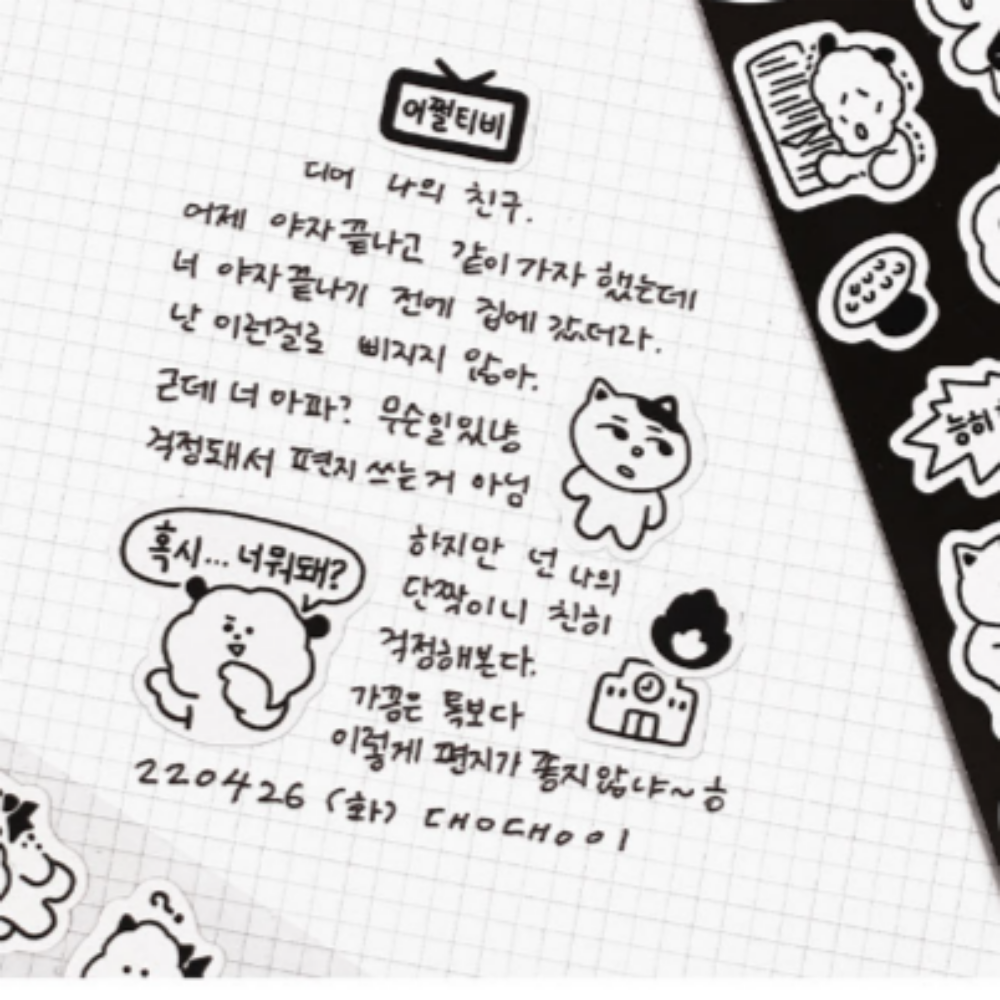 어쩔티비
디어 나의 친구.
어제 야자끝나고 같이가자 했는데
너 야자끝나기 전에 집에 갔더라.
난 이런걸로 삐지지 않아.
근데 너 아파? 무슨일있냥
걱정돼서 편지 쓰는거 아님
혹시... 너뭐돼?
하지만 넌 나의
단짝이니 친히
걱정해본다.
가끔은 톡보다
이렇게 편지가 좋지않냐~ㅎ
220426 (화) CHOCHOO1
능히
?